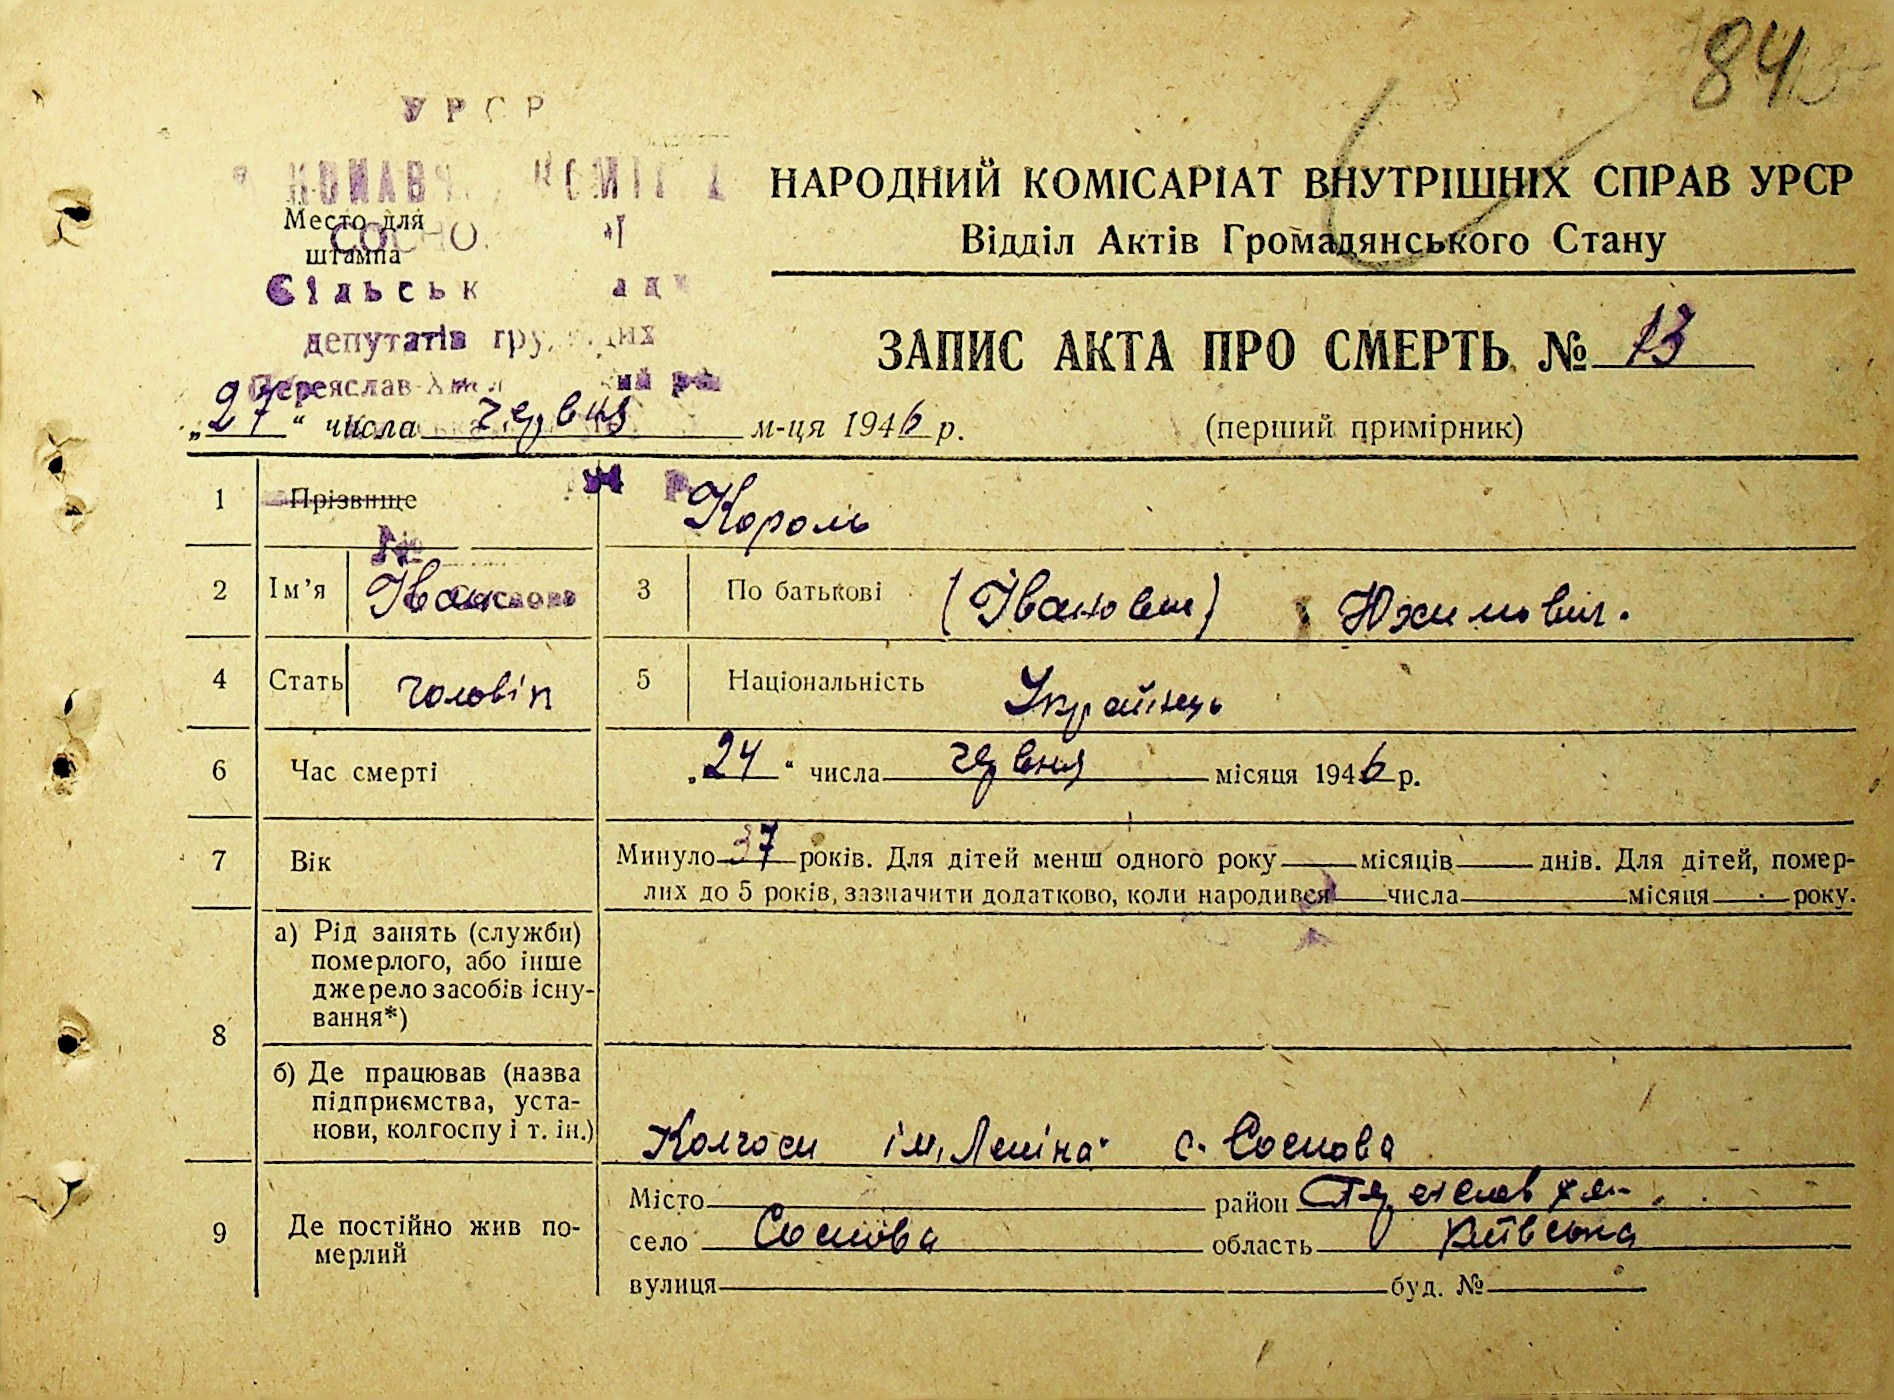 84
УРСР
Место для
штампа
Сільськ
депутатів
Переяслав
НАРОДНИЙ КОМІСАРІАТ ВНУТРІШНІХ СПРАВ УРСР
Відділ Актів Громадянського Стану
ЗАПИС АКТА ПРО СМЕРТЬ № 13
„27“ числа червня м-ця 1946 р.
(перший примірник)
1 Прізвище Король
2 Ім'я Іван 3 По батькові (Іванович) Юхимович.
4 Стать чоловік 5 Національність Українець
6 Час смерті „24“ числа червня місяця 1946 р.
7 Вік Минуло 37 років. Для дітей менш одного року місяців днів. Для дітей, помер-
лих до 5 років, зазначити додатково, коли народився числа місяця року.
8 а) Рід занять (служби)
померлого, або інше
джерело засобів існу-
вання*)
б) Де працював (назва
підприємства, уста-
нови, колгоспу і т. ін.)
Колгосп ім. Леніна с. Соснова
9 Де постійно жив по-
мерлий
Місто район
село Соснова область Київська
вулиця буд. №